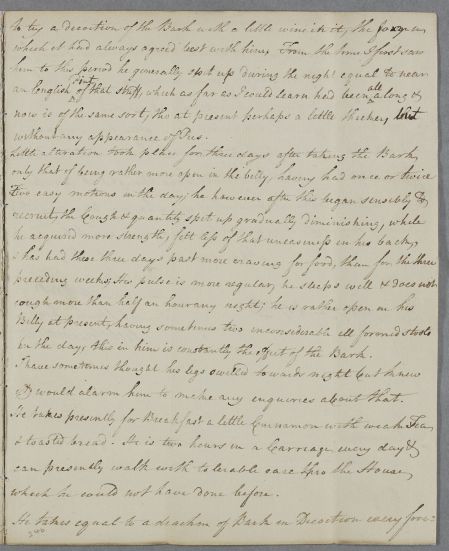 to try a decoction of the Bark with a little wine in it, the form in
which it had always agreed best with him. From the time I first saw
him to this period he generally spit up during the night equal to near
an English pint of that stuff, which as far as I could learn had been all along &
now is of the same sort, tho at present perhaps a little thicker, but
without any appearance of Pus.
Little alteration took place for three days after taking the Bark,
only that of being rather more open in the belly, having had once or twice
two easy motions in the day; he however after this began sensibly to
recruit, the Cough & quantity spit up gradually diminishing, while
he acquired more strength, felt less of that uneasiness in his back,
& has had these three days past more craving for food, than for the three
preceding weeks; His pulse is more regular, he sleeps well & does not
cough more than half an hour any night; he is rather open in his
Belly at present, having sometimes two inconsiderable ill formed stools
in the day, this in him is constantly the effect of the Bark.
I have sometimes thought his legs swelled towards night but knew
it would alarm him to make any enquiries about that.
He takes presently for Breakfast a little Cinnamon with weak Tea
& toasted bread. He is two hours in a Carriage every day &
can presently walk with tolerable ease thro the House,
which he could not have done before.
He takes equal to a drachm of Bark in Decoction every fore=